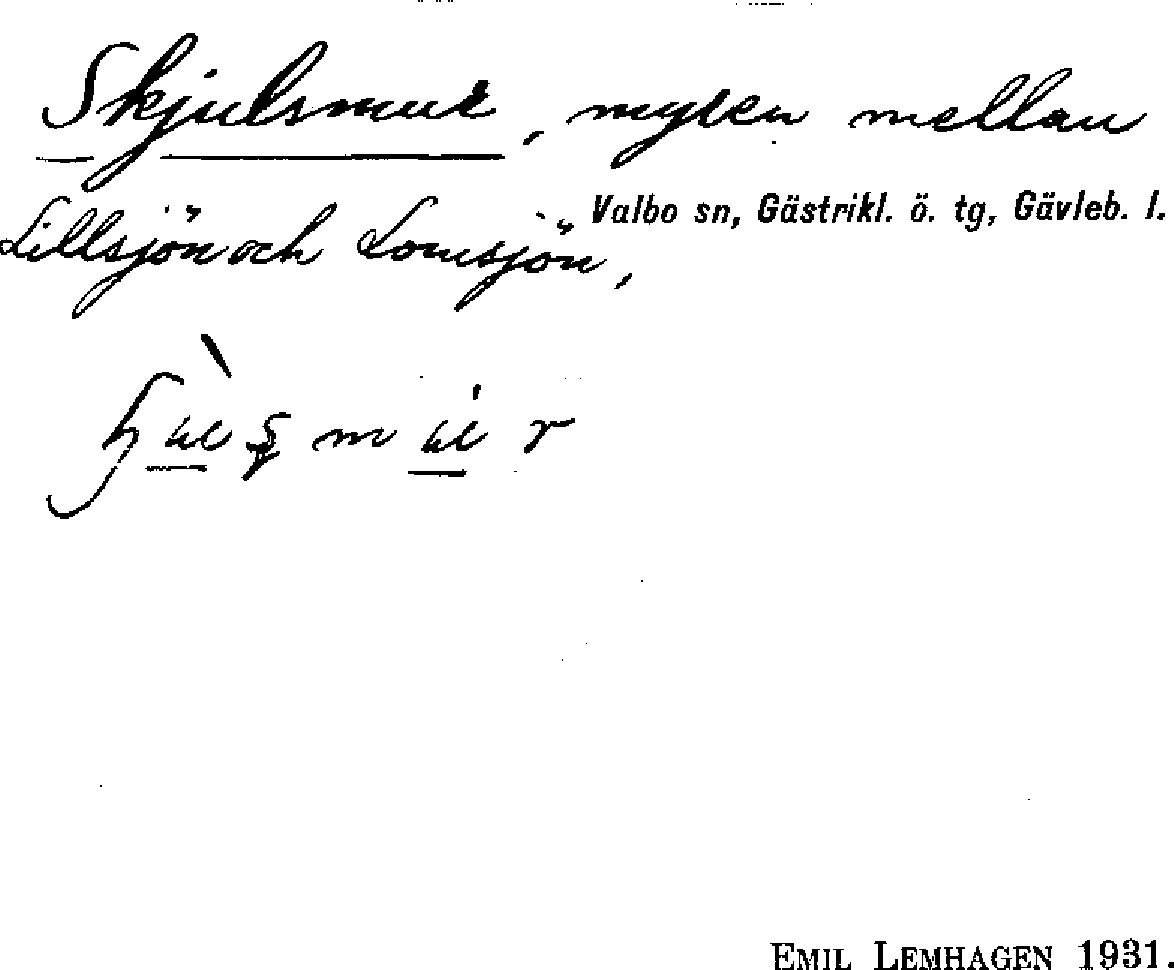 Skjulsmur, myren mellan
Valbo sn, Gästrikl. ö. tg, Gävleb. l.
Lillsjön och Lomsjön,
EMIL LEMHAGEN 1931.